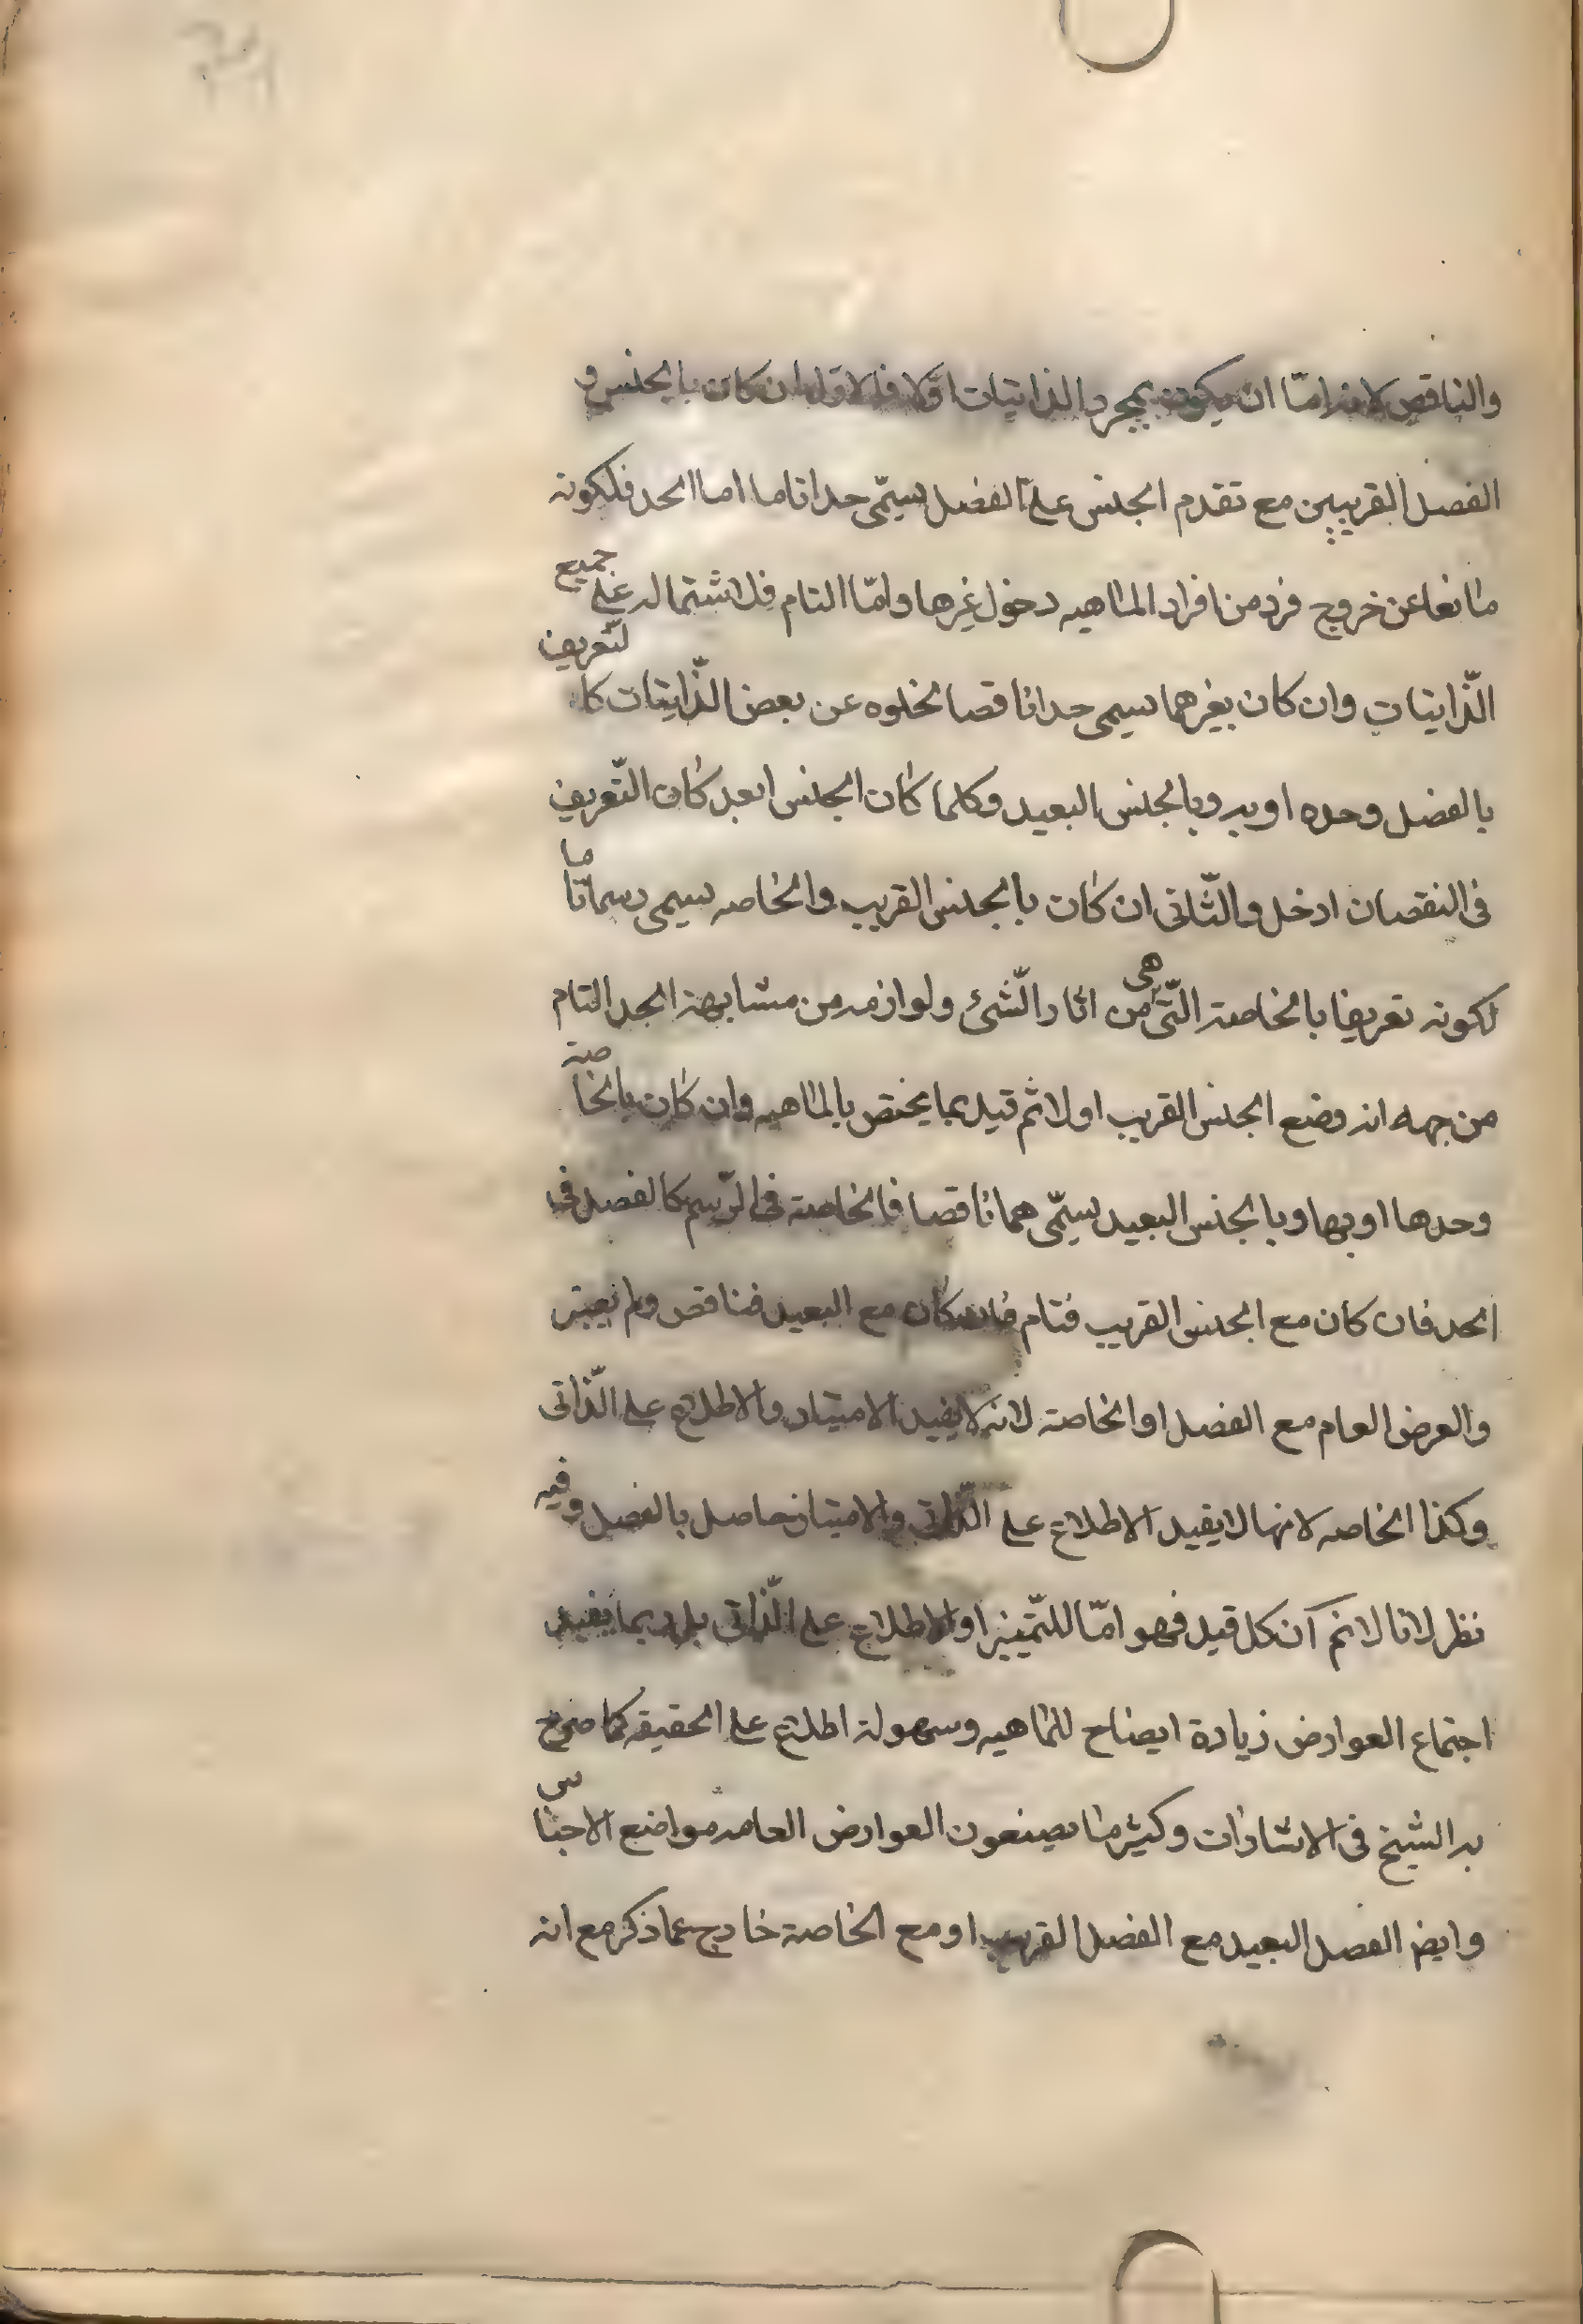 والناقص لانه امّا ان يكون بمجرد الذاتيات اوّلا فالاول ان كان بالجنس و
الفصل القريبين مع تقدم الجنس على الفصل يسمّى حدا تاما اما الحد فلكونه
مانعا عن خروج فرد من افراد الماهيه دخول غيرها وامّا التام فلاشتماله على جميع
الذّاتيات وان كان بغيرهما يسمى حدا ناقصا لخلوه عن بعض الذّاتيات كالتّعريف
بالفصل وحده او به وبالجنس البعيد وكلما كان الجنس ابعد كان التّعريف
فى النقصان ادخل والثّانى ان كان بالجنس القريب والخاصه يسمى رسما تامّا
لكونه تعريفا بالخاصة التّى هى من اثار الشّئ ولوازمه من مشابهة الحد التام
من جهه انه وضع الجنس القريب اولا ثم قيد بما يختص بالماهيه وان كان بالخاصة
وحدها او بها وبالجنس البعيد يسمّى هما ناقصا فالخاصة فى الرّسم كالفصل فى
الحد فان كان مع الجنس القريب فتام فان كان مع البعيد فناقص ولم يعتبر
والعرض العام مع الفصل او الخاصة لانه لا يفيد الامتياز والاطلاع على الذّاتى
وكذا الخاصه لانها لا يفيد الاطلاع على الذّاتى والامتياز حاصل بالفصل وفيه
نظر لانا لانم ان كل قيد فهو امّا للتّمييز او الاطلاع على الذّاتى بل ربما يفيد
اجتماع العوارض زيادة ايضاح للماهيه وسهولة اطلاع على الحقيقه كما صرح
به الشيخ فى الاشارات وكثير ما يضعون العوارض العامه مواضع الاجناس
وايضر الفصل البعيد مع الفصل القريب او مع الخاصة خارج عما ذكر مع انه